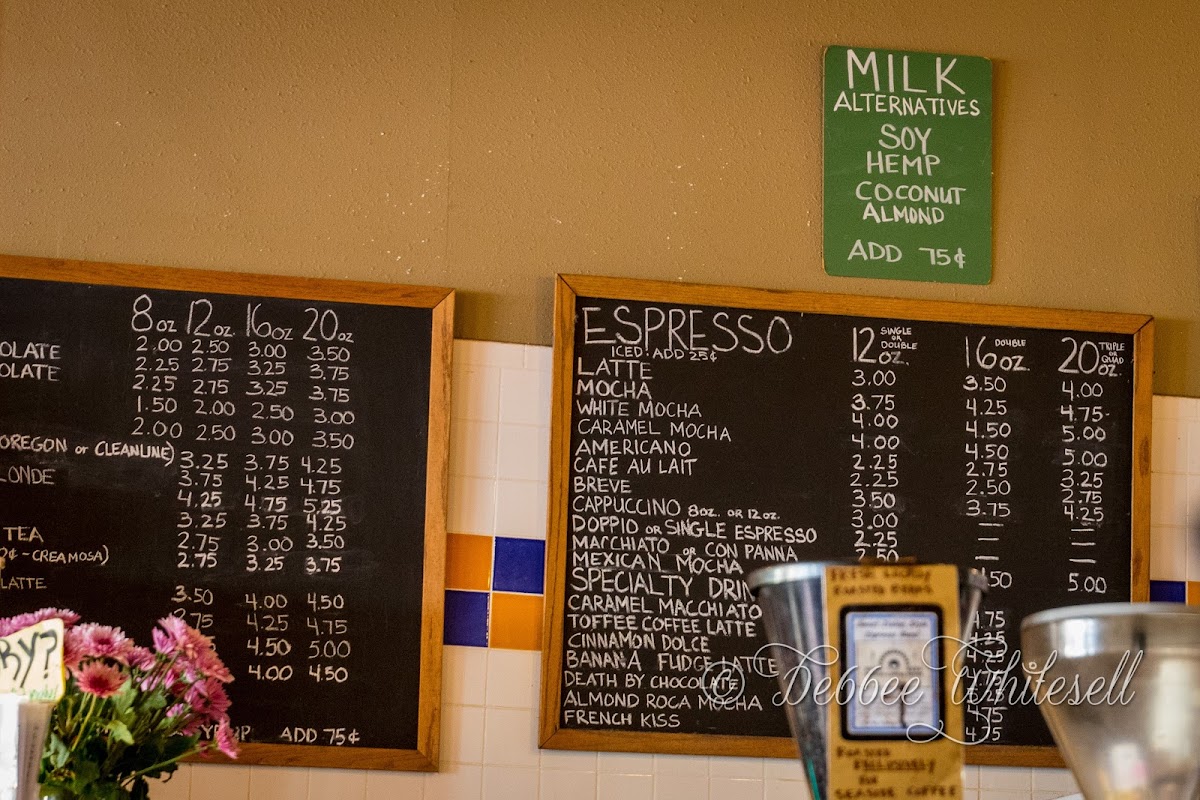 MILK
ALTERNATIVES
SOY
HEMP
COCONUT
ALMOND
ADD 75¢
8oz 12oz. 16oz 20oz
OLATE 2.00 2.50 3.00 3.50
OLATE 2.25 2.75 3.25 3.75
2.25 2.75 3.25 3.75
1.50 2.00 2.50 3.00
2.00 2.50 3.00 3.50
OREGON or CLEANLINE) 3.25 3.75 4.25
LONDE 3.75 4.25 4.75
4.25 4.75 5.25
3.25 3.75 4.25
TEA 2.75 3.00 3.50
¢-CREAMOSA) 2.75 3.25 3.75
LATTE 3.50 4.00 4.50
4.25 4.75
4.50 5.00
4.00 4.50
ADD 75¢
RY?
ESPRESSO 12 SINGLE OR DOUBLE OZ. 16 DOUBLE OZ. 20 TRIPLE OR QUAD OZ.
ICED: ADD 25¢
LATTE 3.00 3.50 4.00
MOCHA 3.75 4.25 4.75
WHITE MOCHA 4.00 4.50 5.00
CARAMEL MOCHA 4.00 4.50 5.00
AMERICANO 2.25 2.75 3.25
CAFE AU LAIT 2.25 2.50 2.75
BREVE 3.50 3.75 4.25
CAPPUCCINO 8oz. OR 12oz. 3.00 — —
DOPPIO OR SINGLE ESPRESSO 2.25 — —
MACCHIATO OR CON PANNA 2.50 — —
MEXICAN MOCHA .50 5.00
SPECIALTY DRIN
CARAMEL MACCHIATO 4.75
TOFFEE COFFEE LATTE 4.25
CINNAMON DOLCE
BANANA FUDGE LATTE
DEATH BY CHOCOLATE
ALMOND ROCA MOCHA 4.75
FRENCH KISS 4.75
ROASTED
EXCLUSIVELY
FOR
SEASIDE COFFEE
© Debbee Whitesell